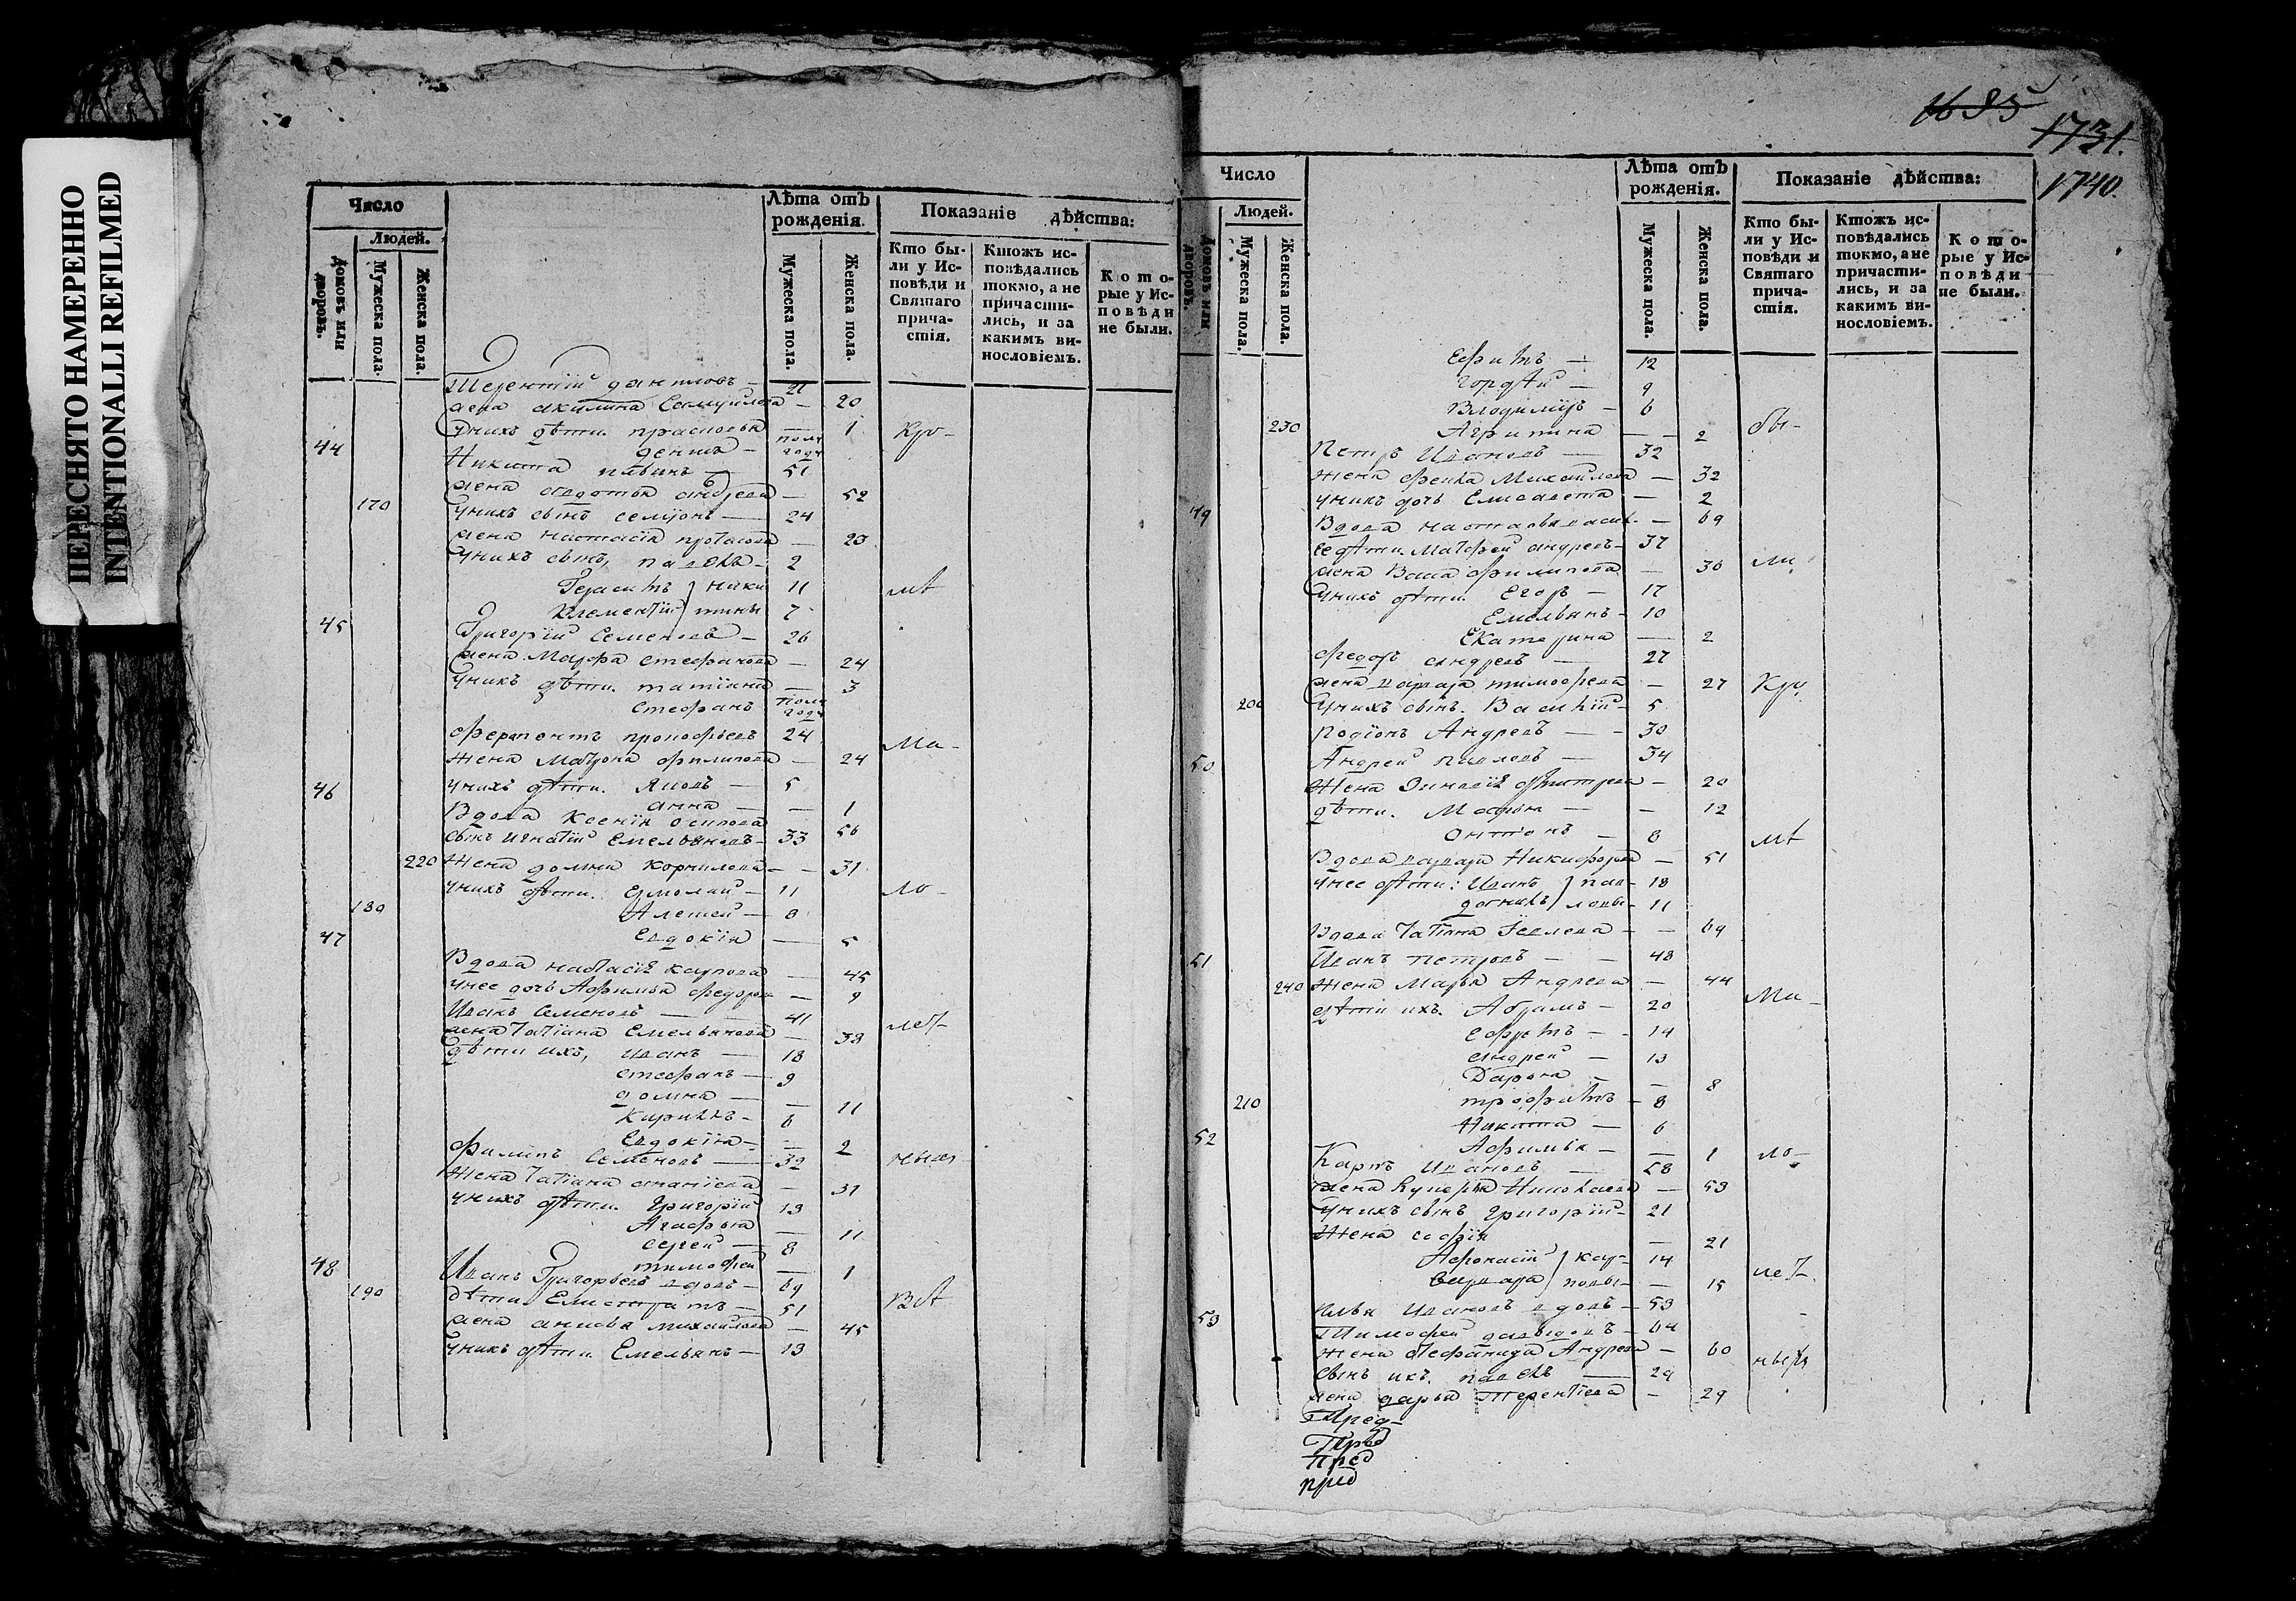 ПЕРЕСНЯТО НАМЕРЕННО
INTENTIONALLI REFILMED
Число
Людей.
Домовъ или дворовъ.
Мужеска пола.
Женска пола.
Лѣта отъ рожденія.
Мужеска пола.
Женска пола.
Показаніе дѣйства:
Кто были у Исповѣди и Святаго причастія.
Ктожъ исповѣдались токмо, а не причастились, и за какимъ винословіемъ.
Которые у Исповѣди не были.
Терентій даниловъ — 21
жена акилина Самуилова — 20
Унихъ дѣти. прасковья — 1 Кро-
44 денисъ — полугода
Никита — 51
жена авдотья андреева — 52
170 Унихъ сынъ семіонъ — 24
жена настасія — 23
Унихъ сынъ, павелъ — 2
Герасимъ } ники 11
Клементій } тины 7
45 Григорій Семеновъ — 26
жена Марфа стефанова — 24
Унихъ дѣти. татіана — 3
стефанъ полугода
ферапонтъ прокофьевъ 24 Ма-
жена Матрона филипова — 24
46 Унихъ дѣти. Яковъ — 5
анна — 1
Вдова Ксенія осипова 56
сынъ игнатій Емельяновъ — 33
220 Жена домна корнилова — 31
Унихъ дѣти. ермолай — 11 ло-
180 Алексей — 8
47 Евдокія — 5
Вдова настасія карпова — 45
Унее дочь Афимья федорова — 9
Иванъ Семеновъ — 41
жена татіана Емельянова — 38
дѣти ихъ, иванъ — 18
стефанъ — 9
домна — 11
Кирилъ — 6
Евдокіа — 2
филипъ Семеновъ — 32
жена татіана — 31
Унихъ дѣти. Григорій 13
Агафья — 11
сергей — 8
48 тимофей — 1
Иванъ Григорьевъ вдовъ — 69
190 дѣти Елистратъ — 51
жена анисья михайлова — 45
Унихъ дѣти Емельянъ — 13
1685
1731.
1740.
Число
Людей.
Домовъ или дворовъ.
Мужеска пола.
Женска пола.
Лѣта отъ рожденія.
Мужеска пола.
Женска пола.
Показаніе дѣйства:
Кто были у Исповѣди и Святаго причастія.
Ктожъ исповѣдались токмо, а не причастились, и за какимъ винословіемъ.
Которые у Исповѣди не были.
Ефимъ — 12
Гордѣй — 9
Владимиръ — 6
230 Агрипина — 2 бы-
Петръ Ивановъ — 32
Жена Михаилова — 32
Унихъ дочь Елисавета — 2
49 Вдова настасья — 69
ее дѣти. Матфей андреевъ — 37
жена Васа филипова — 36 ли
Унихъ дѣти. Егоръ — 17
Емельянъ — 10
Екатерина — 2
федоръ андреевъ — 27
жена варвара тимофеева — 27
200 Унихъ сынъ. Василій — 5
Родіонъ Андреевъ — 30
50 Андрей павловъ — 34
Жена Зиновія дмитрева — 20
дѣти. Марья — 12
онтонъ — 8
Вдова варвара Никифорова — 51
Унее дѣти: Иванъ } пав- 18
ловы — 11
Вдова татіана — 69
51 Иванъ петровъ — 48
240 жена Марья Андреева — 44 Ма-
дѣти ихъ. Абрамъ — 20
ефремъ — 14
андрей — 13
Дарья — 8
210 трофимъ — 8
Никита — 6
52 Афимья — 1 ло-
Карпъ Ивановъ — 58
жена Николаева — 53
Унихъ сынъ григорій — 21
Жена софія — 21
Афонасій } кар- 14
варвара } повы — 15
Илья Ивановъ вдовъ — 53
53 Тимофей давыдовъ — 64
жена стефанида Андреева — 60
сынъ ихъ. павелъ — 29
жена дарья терентіева — 29
Пред-
Пред
пред
пред